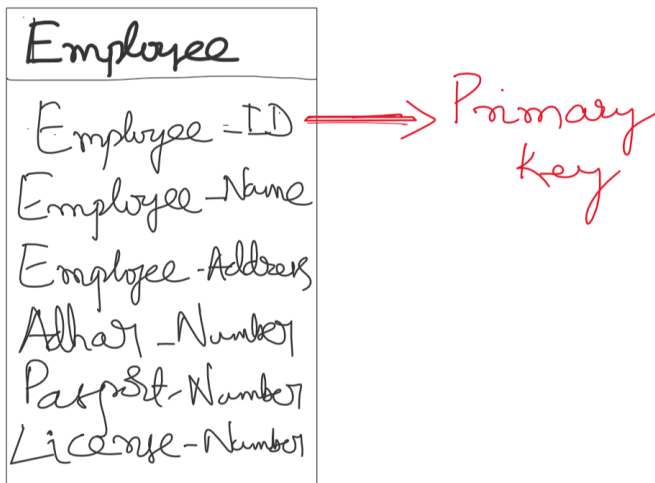 Employee
Employee_ID
Primary
Key
Employee_Name
Employee-Address
Adhar_Number
Passport-Number
License-Number